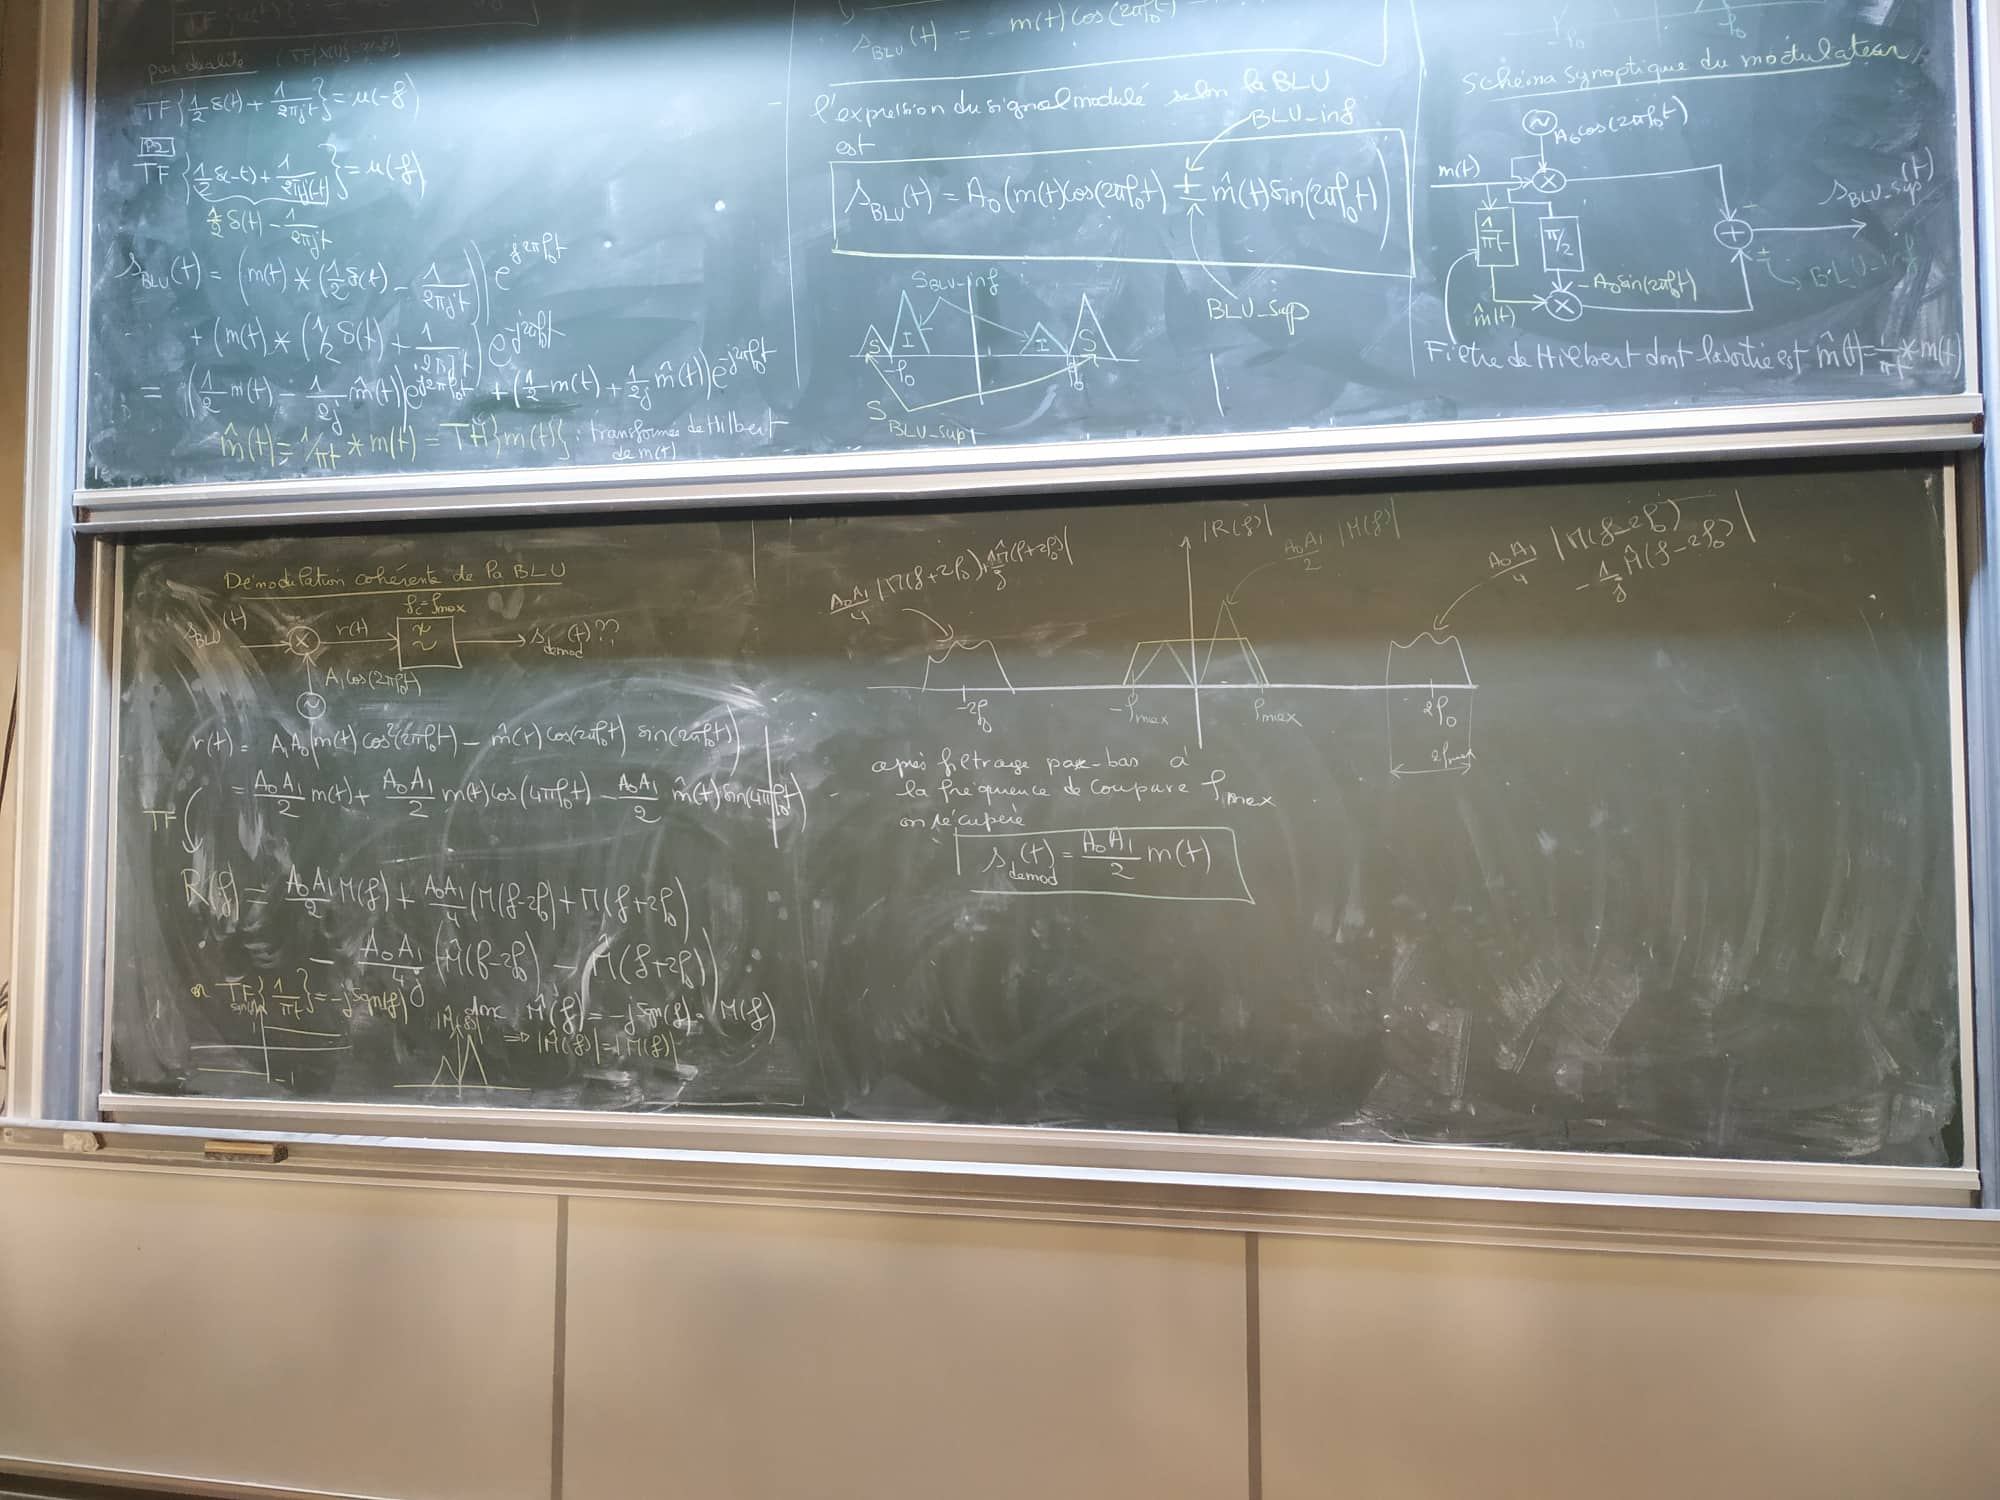 par dualité
TF{1/2 δ(t) + 1/(2πjt)} = u(-f)
P2
TF{1/2 δ(-t) + 1/(2πj(-t))} = u(f)
1/2 δ(t) - 1/(2πjt)
s_BLU(t) = (m(t) * (1/2 δ(t) - 1/(2πjt))) e^{j2πf₀t}
+ (m(t) * (1/2 δ(t) + 1/(2πjt))) e^{-j2πf₀t}
= (1/2 m(t) - 1/(2j) m̂(t)) e^{j2πf₀t} + (1/2 m(t) + 1/(2j) m̂(t)) e^{-j2πf₀t}
m̂(t) = 1/πt * m(t) = TH{m(t)} : transformée de Hilbert
de m(t)
s_BLU(t) = m(t) cos(2πf₀t)
l'expression du signal modulé selon la BLU
est
BLU_inf
s_BLU(t) = A₀(m(t)cos(2πf₀t) ± m̂(t)sin(2πf₀t))
BLU_sup
S_BLU-inf
S I I S
-f₀ f₀
S_BLU_sup
-f₀ f₀
Schéma synoptique du modulateur
A₀cos(2πf₀t)
m(t)
1/πt
π/2
-A₀sin(2πf₀t)
m̂(t)
s_BLU_sup(t)
BLU_inf
Filtre de Hilbert dont la sortie est m̂(t) = 1/πt * m(t)
Démodulation cohérente de la BLU
s_BLU(t)
r(t)
fc = fmax
s_demod(t) ??
A₁cos(2πf₀t)
r(t) = A₁A₀(m(t) cos²(2πf₀t) - m̂(t) cos(2πf₀t) sin(2πf₀t))
= A₀A₁/2 m(t) + A₀A₁/2 m(t)cos(4πf₀t) - A₀A₁/2 m̂(t)sin(4πf₀t)
TF
R(f) = A₀A₁/2 M(f) + A₀A₁/4 (M(f-2f₀) + M(f+2f₀))
- A₀A₁/4j (M̂(f-2f₀) - M̂(f+2f₀))
or TF{1/πt} = -j sgn(f)
donc M̂(f) = -j sgn(f) · M(f)
⇒ |M̂(f)| = |M(f)|
sgn(f)
1
-1
|M̂(f)|
A₀A₁/4 |M(f+2f₀) + 1/j M̂(f+2f₀)|
|R(f)|
A₀A₁/2 |M(f)|
A₀A₁/4 |M(f-2f₀) - 1/j M̂(f-2f₀)|
-2f₀ -fmax fmax 2f₀
2fmax
après filtrage passe-bas à
la fréquence de coupure fmax
on récupère
s_demod(t) = A₀A₁/2 m(t)